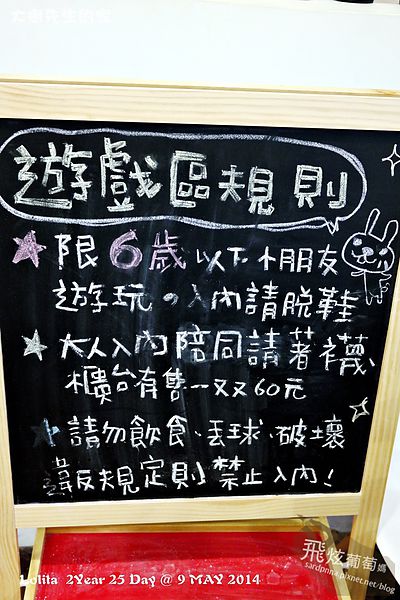 大衛先生的家
遊戲區規則
限6歲以下小朋友
遊玩の入內請脫鞋
大人入內陪同請著襪、
櫃台有售一双60元
請勿飲食、丟球、破壞
違反規定則禁止入內!
飛炫葡萄媽
sardpnn4.pixnet.net/blog
Lolita 2Year 25 Day @ 9 MAY 2014